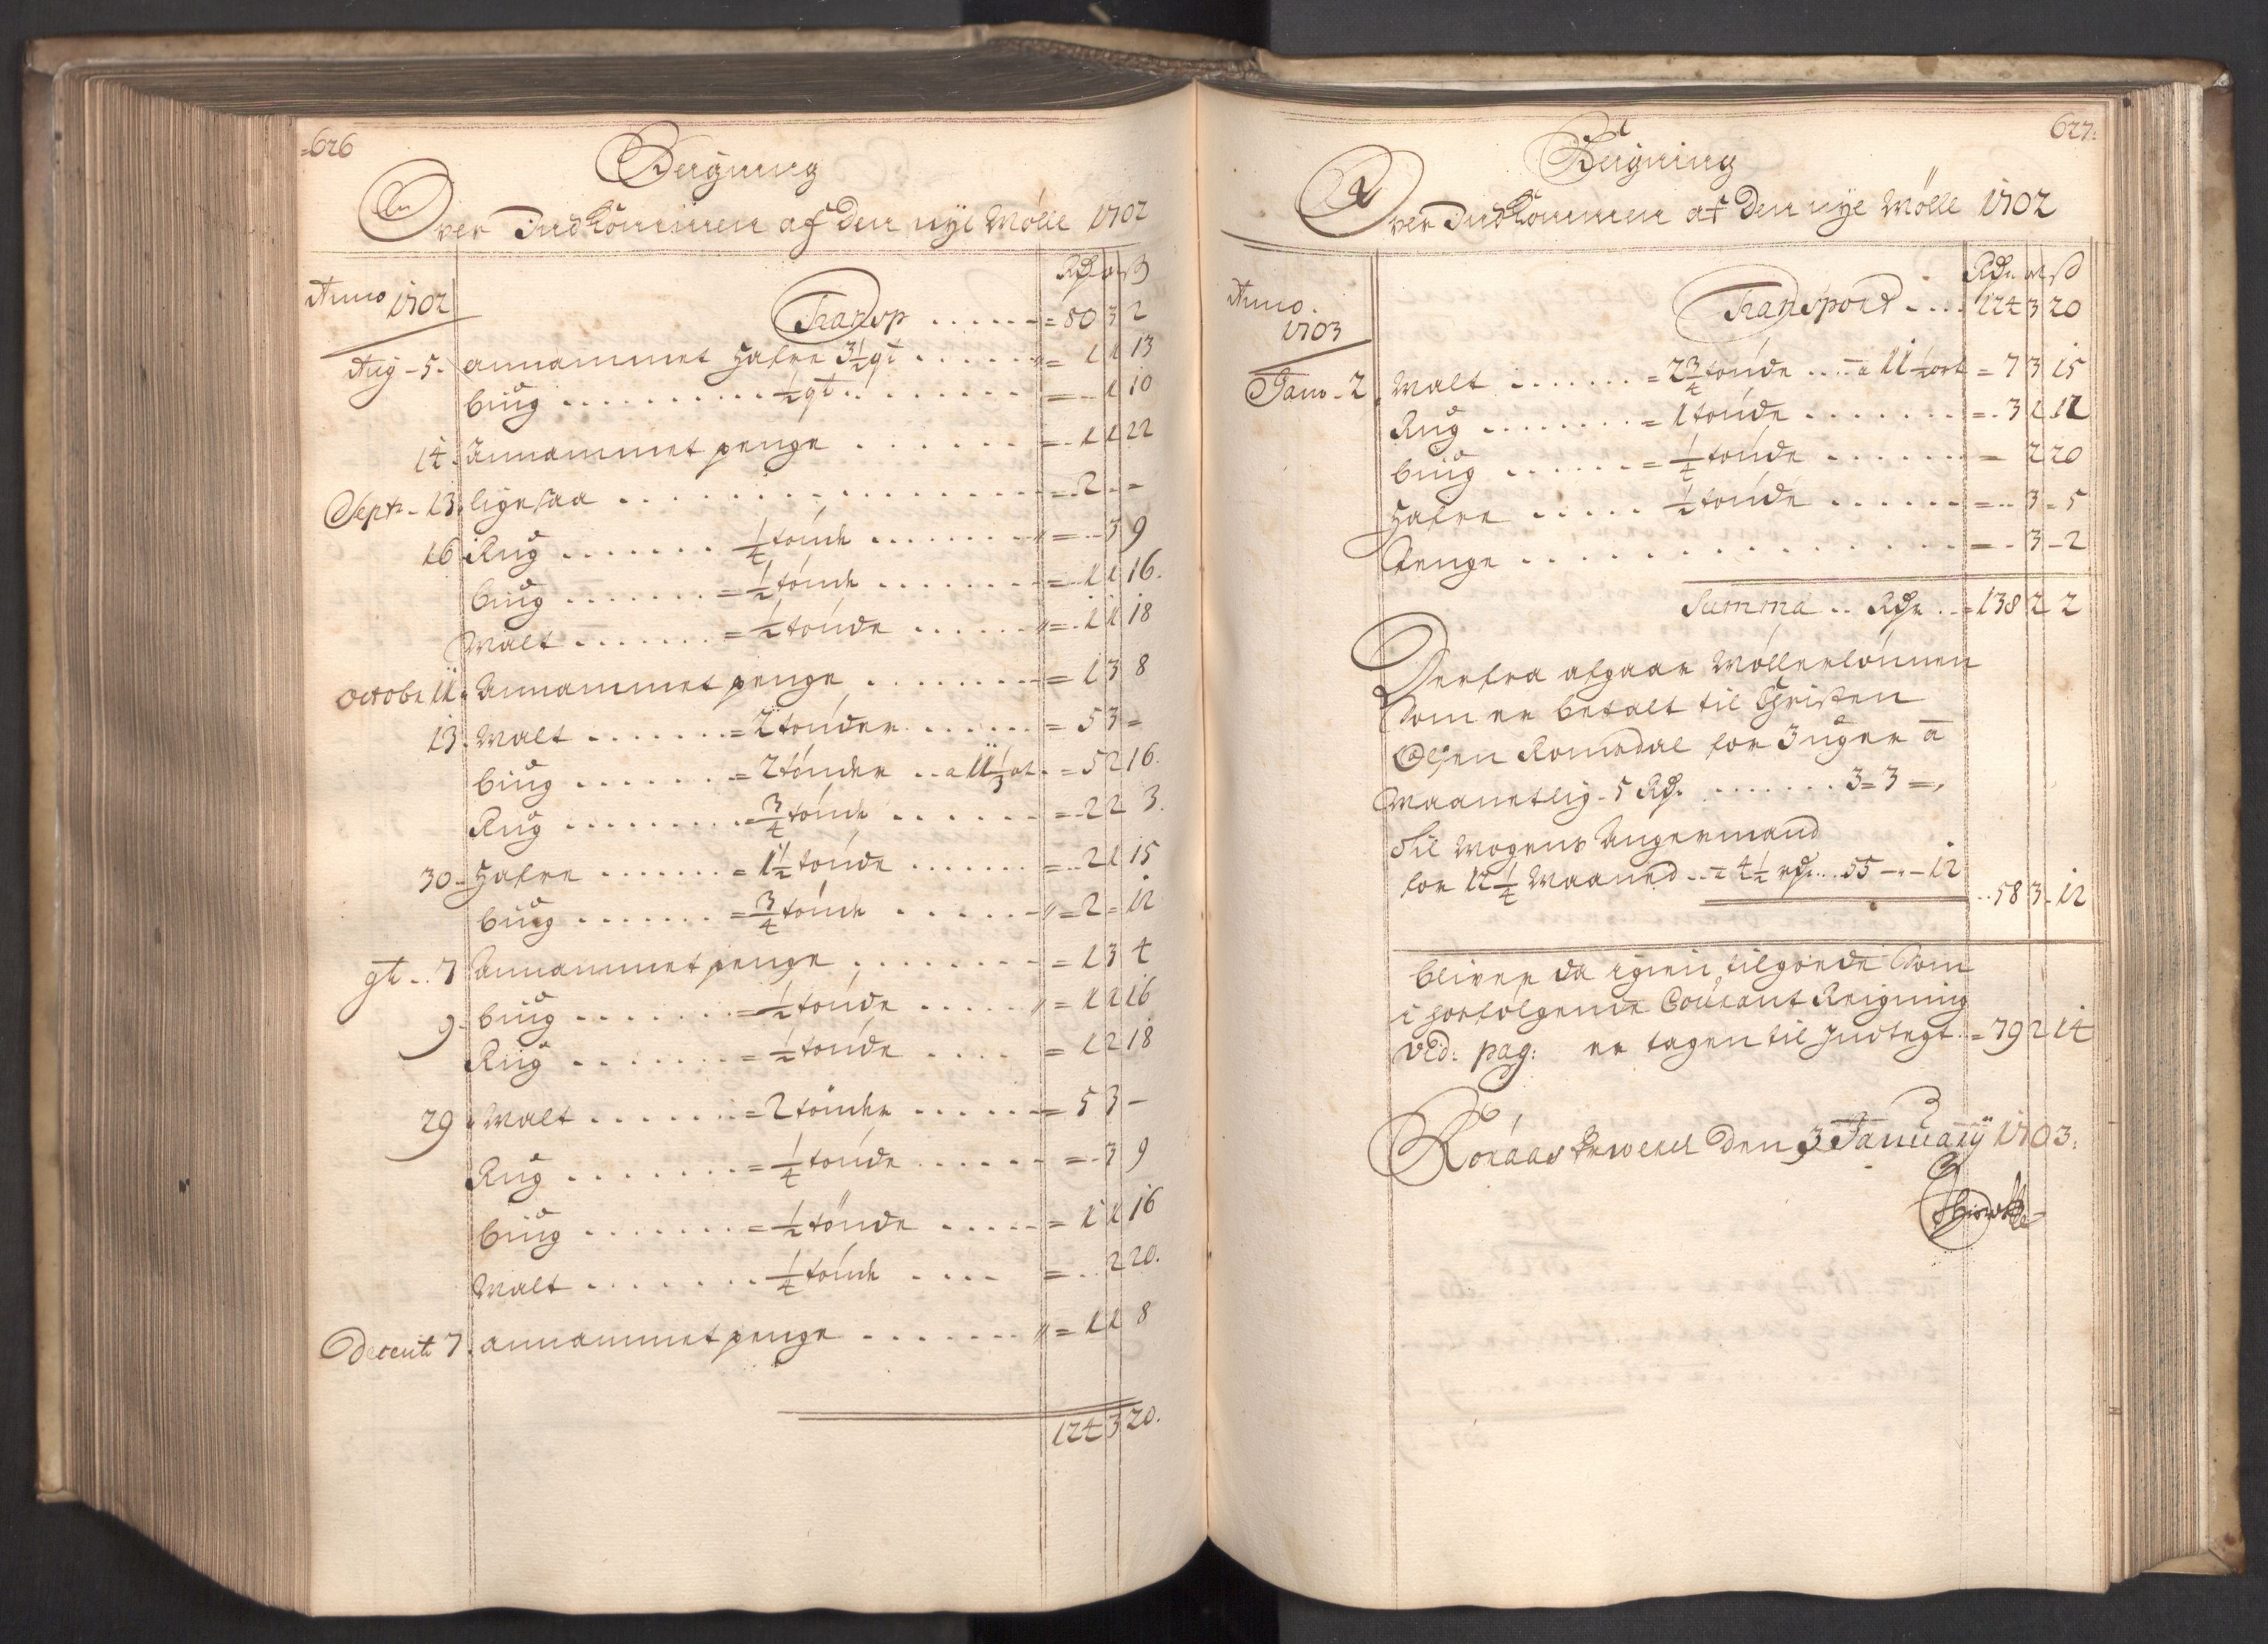 626
Reigning
Over Indkommen af den nÿe Mölle 1702
Rdr ort ß
Anno 1702
Transp ...... = 80 3 2
Aug - 5. annammet Hafre 3½ qt ...... = 1 1 13
biug .......... ½ qt ........ = - 1 10
14. Annammet penge ....... = 1 1 22
Sept. 13. ligesaa ............... = 2 - =
16 Rug ....... ¼ tönde ........ = - 3 9
biug ....... = ½ tönde ........ = 1 1 16.
Malt ....... = ½ tönde ...... = 1 1 18
Octobr 11. Annammet penge ........ = 1 3 8
13. Malt ....... = 2 tönder ....... = 5 3 =
biug ...... = 2 tönder .. a 11⅓ ort. = 5 2 16.
Rug ........ = ¾ tönde ...... = 2 2 3.
30 - Hafre ....... = 1½ tönde ....... = 2 1 15
biug ....... = ¾ tönde ...... = 2 = 12
9br .. 7 Annammet penge ........ = 1 3 4
9 - biug ....... = ½ tönde ..... = 1 1 16
Rug ....... = ½ tönde .... = 1 2 18
29 Malt ...... = 2 tönder ...... = 5 3 -
Rug ....... = ¼ tönde ...... = - 3 9
biug ....... = ½ tönde ..... = 1 1 16
Malt ....... ¼ tönde .... = .. 2 20.
Decemb 7. annammet penge ....... = 1 1 8
124 3 20.
627.
Reigning
Over Indkommen af den nÿe Mölle 1702
Rdr. ort ß
Anno.
1703
Transport .... 124 3 20
Janv. 2. Malt ....... = 2¾ tönde .... a 11½ ort = 7 3 15
Rug ........ = 1 tönde ........ = 3 1 12
biug ...... = ¼ tönde ....... = 2 20
Hafre ..... ½ tönde ...... = .. 3 = 5
Penge ............... = - 3 - 2
Summa .. Rdr .. = 138 2 2
Derfra afgaar Möllerlönnen
Som er betalt til Christen
Olsen Romsdal for 3 uger a
Maanetlig - 5 Rdr. ....... 3 = 3 =,
Til Mogens Angermand
for 12¼ Maaned .. a 4½ rdr ... 55 - . - 12
.. 58 3 - 12
bliver da igien tilgode Som
i forfölgende Courant Reigning
vid: pag: er tagen til Indtegt. = 79 2 14
Röraas Kw den 3 Januarÿ 1703.